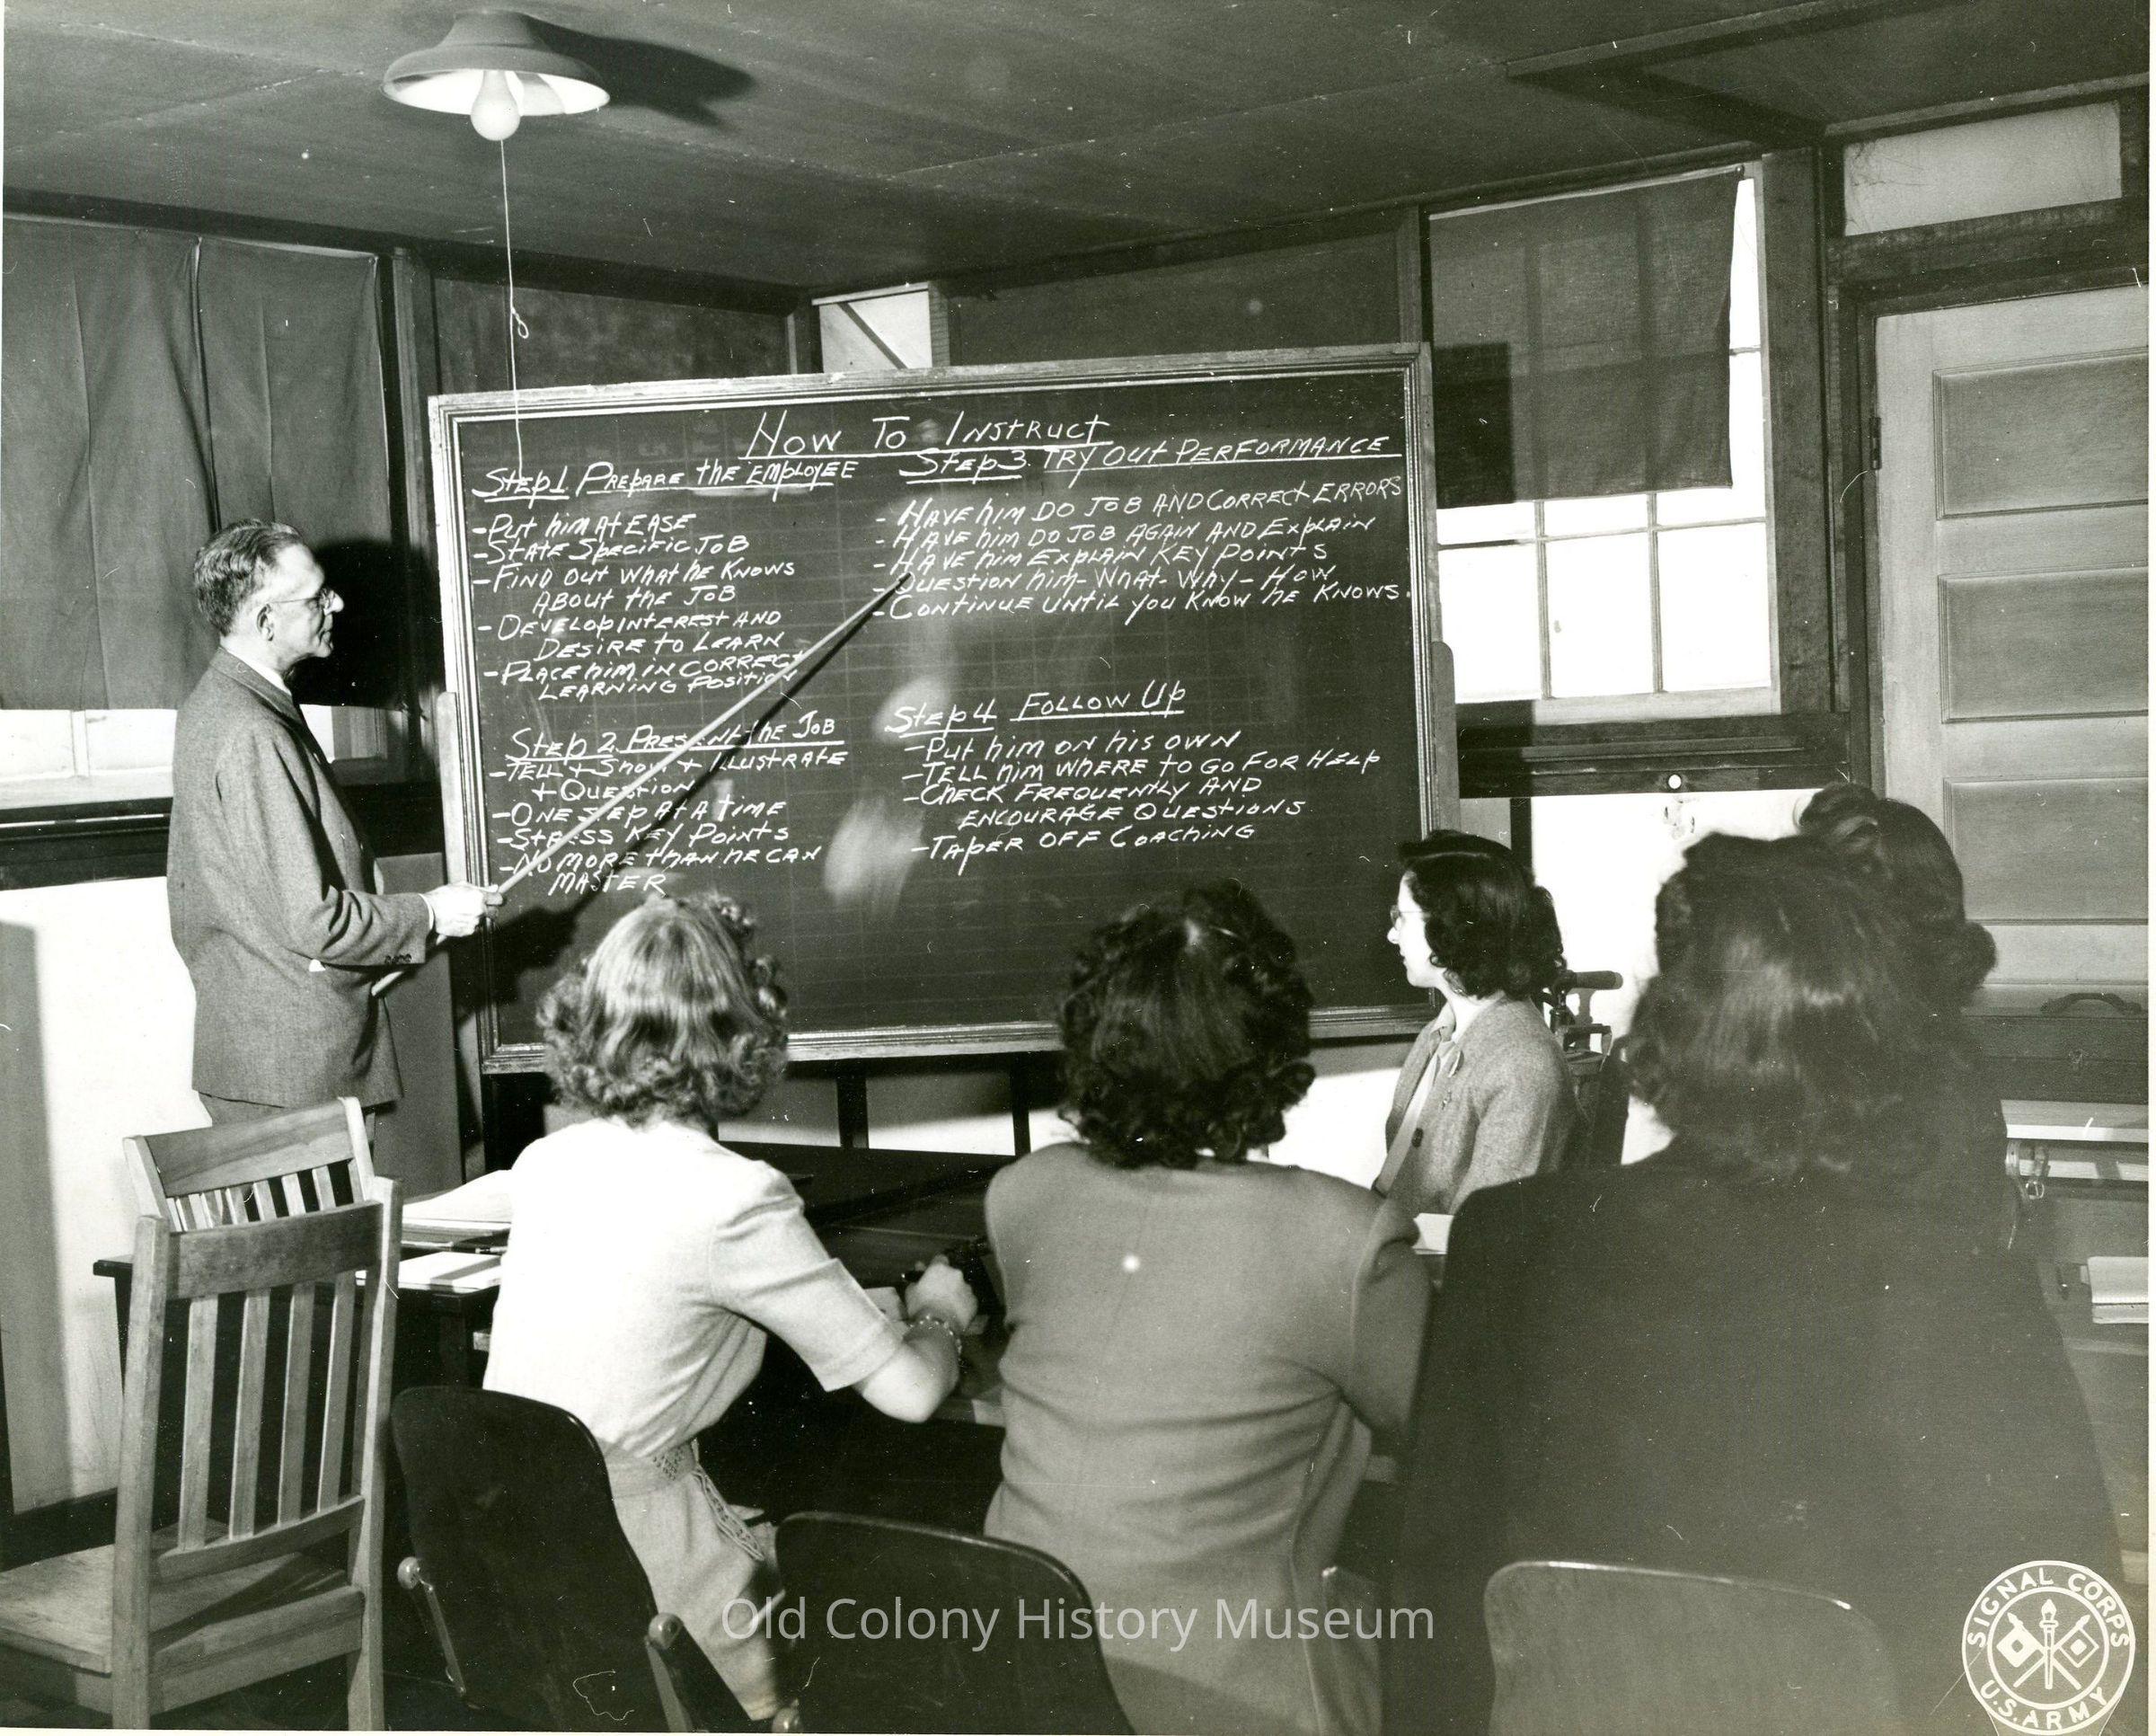 How To Instruct
Step 1 Prepare the Employee
-Put him At Ease
-State Specific Job
-Find out what he Knows
About the Job
-Develop interest and
Desire to Learn
-Place him in Correct
Learning Position
Step 2 Present the Job
-Tell + Show + Illustrate
+ Question
-One step At A time
-Stress Key Points
-No more than he can
Master
Step 3. Try Out Performance
- Have him Do Job and Correct Errors
- Have him Do Job Again and Explain
- Have him Explain Key Points
- Question him - What - Why - How
- Continue until you Know he Knows.
Step 4 Follow Up
-Put him on his own
-Tell him where to go for Help
-Check Frequently and
Encourage Questions
-Taper off Coaching
Old Colony History Museum
SIGNAL CORPS
U.S. ARMY